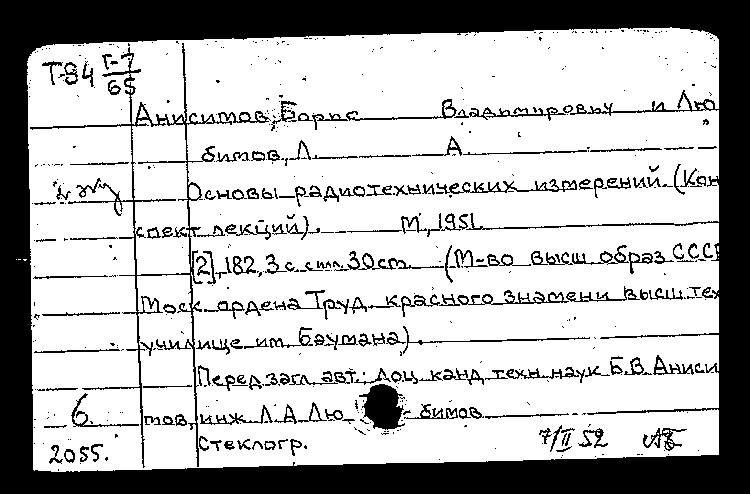 Т-84 Г-7
65
Анисимов, Борис Владимирович и Лю
бимов, Л. А.
2 экз
Основы радиотехнических измерений. (Кон
спект лекций). М, 1951.
[2], 182, 3 с. с илл. 30 ст. (М-во высш. образ СССР
Моск. ордена Труд. красного знамени высш. тех
училище им. Баумана).
Перед загл. авт.: доц. канд. техн. наук Б.В. Аниси
6. мов, инж. Л.А. Лю бимов
2055. Стеклогр. 7/II 52